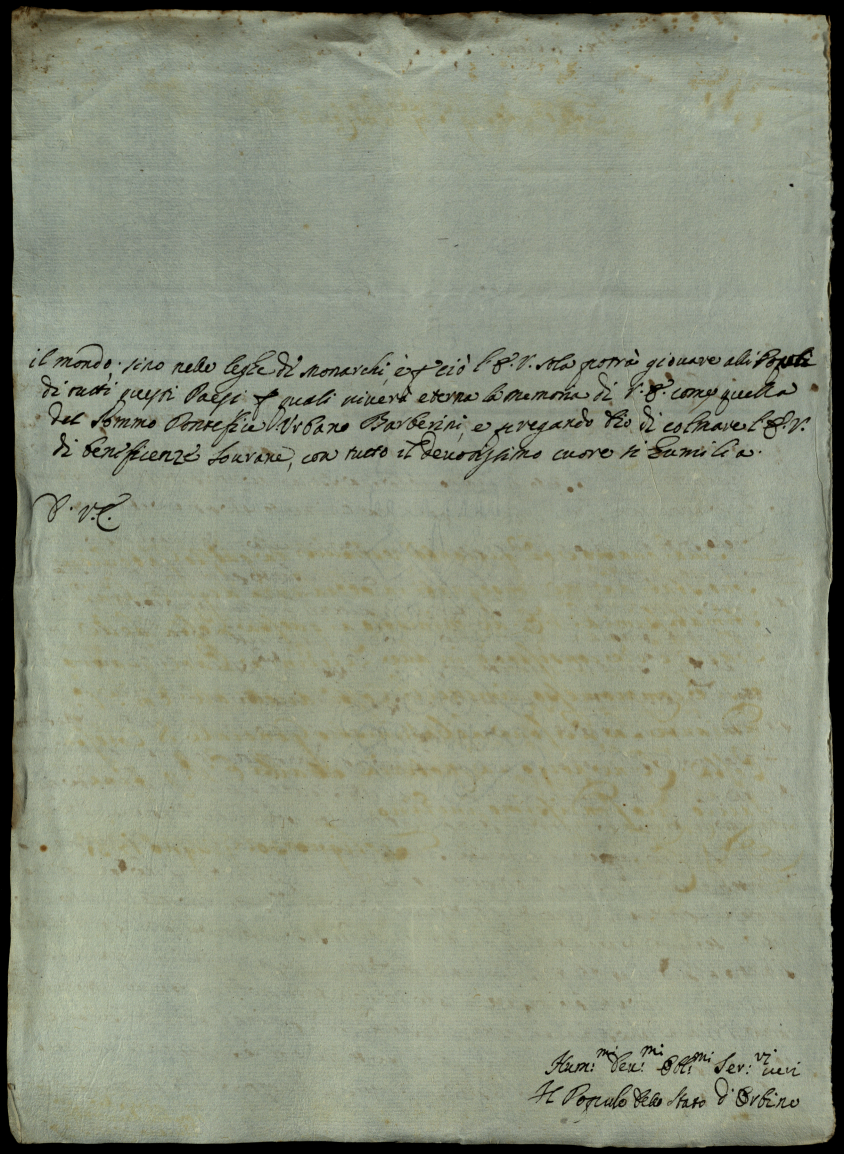 il mondo, sino nelle legge di Monarchi, è p ciò l'E. V. sola potrà giouare alli Popoli
di tutti questi Paesi p quali viuerà eterna la memoria di V. E. come quella
del Sommo Pontefice Vrbano Barberini, e pregando Dio di colmare l'E. V.
di beneficenze Sourane, con tutto il deuotissimo cuore si humilia.
D. V. E.
Hum:mi Deu:mi Obl:mi Ser:vi veri
Il Popolo dello Stato d'Vrbino